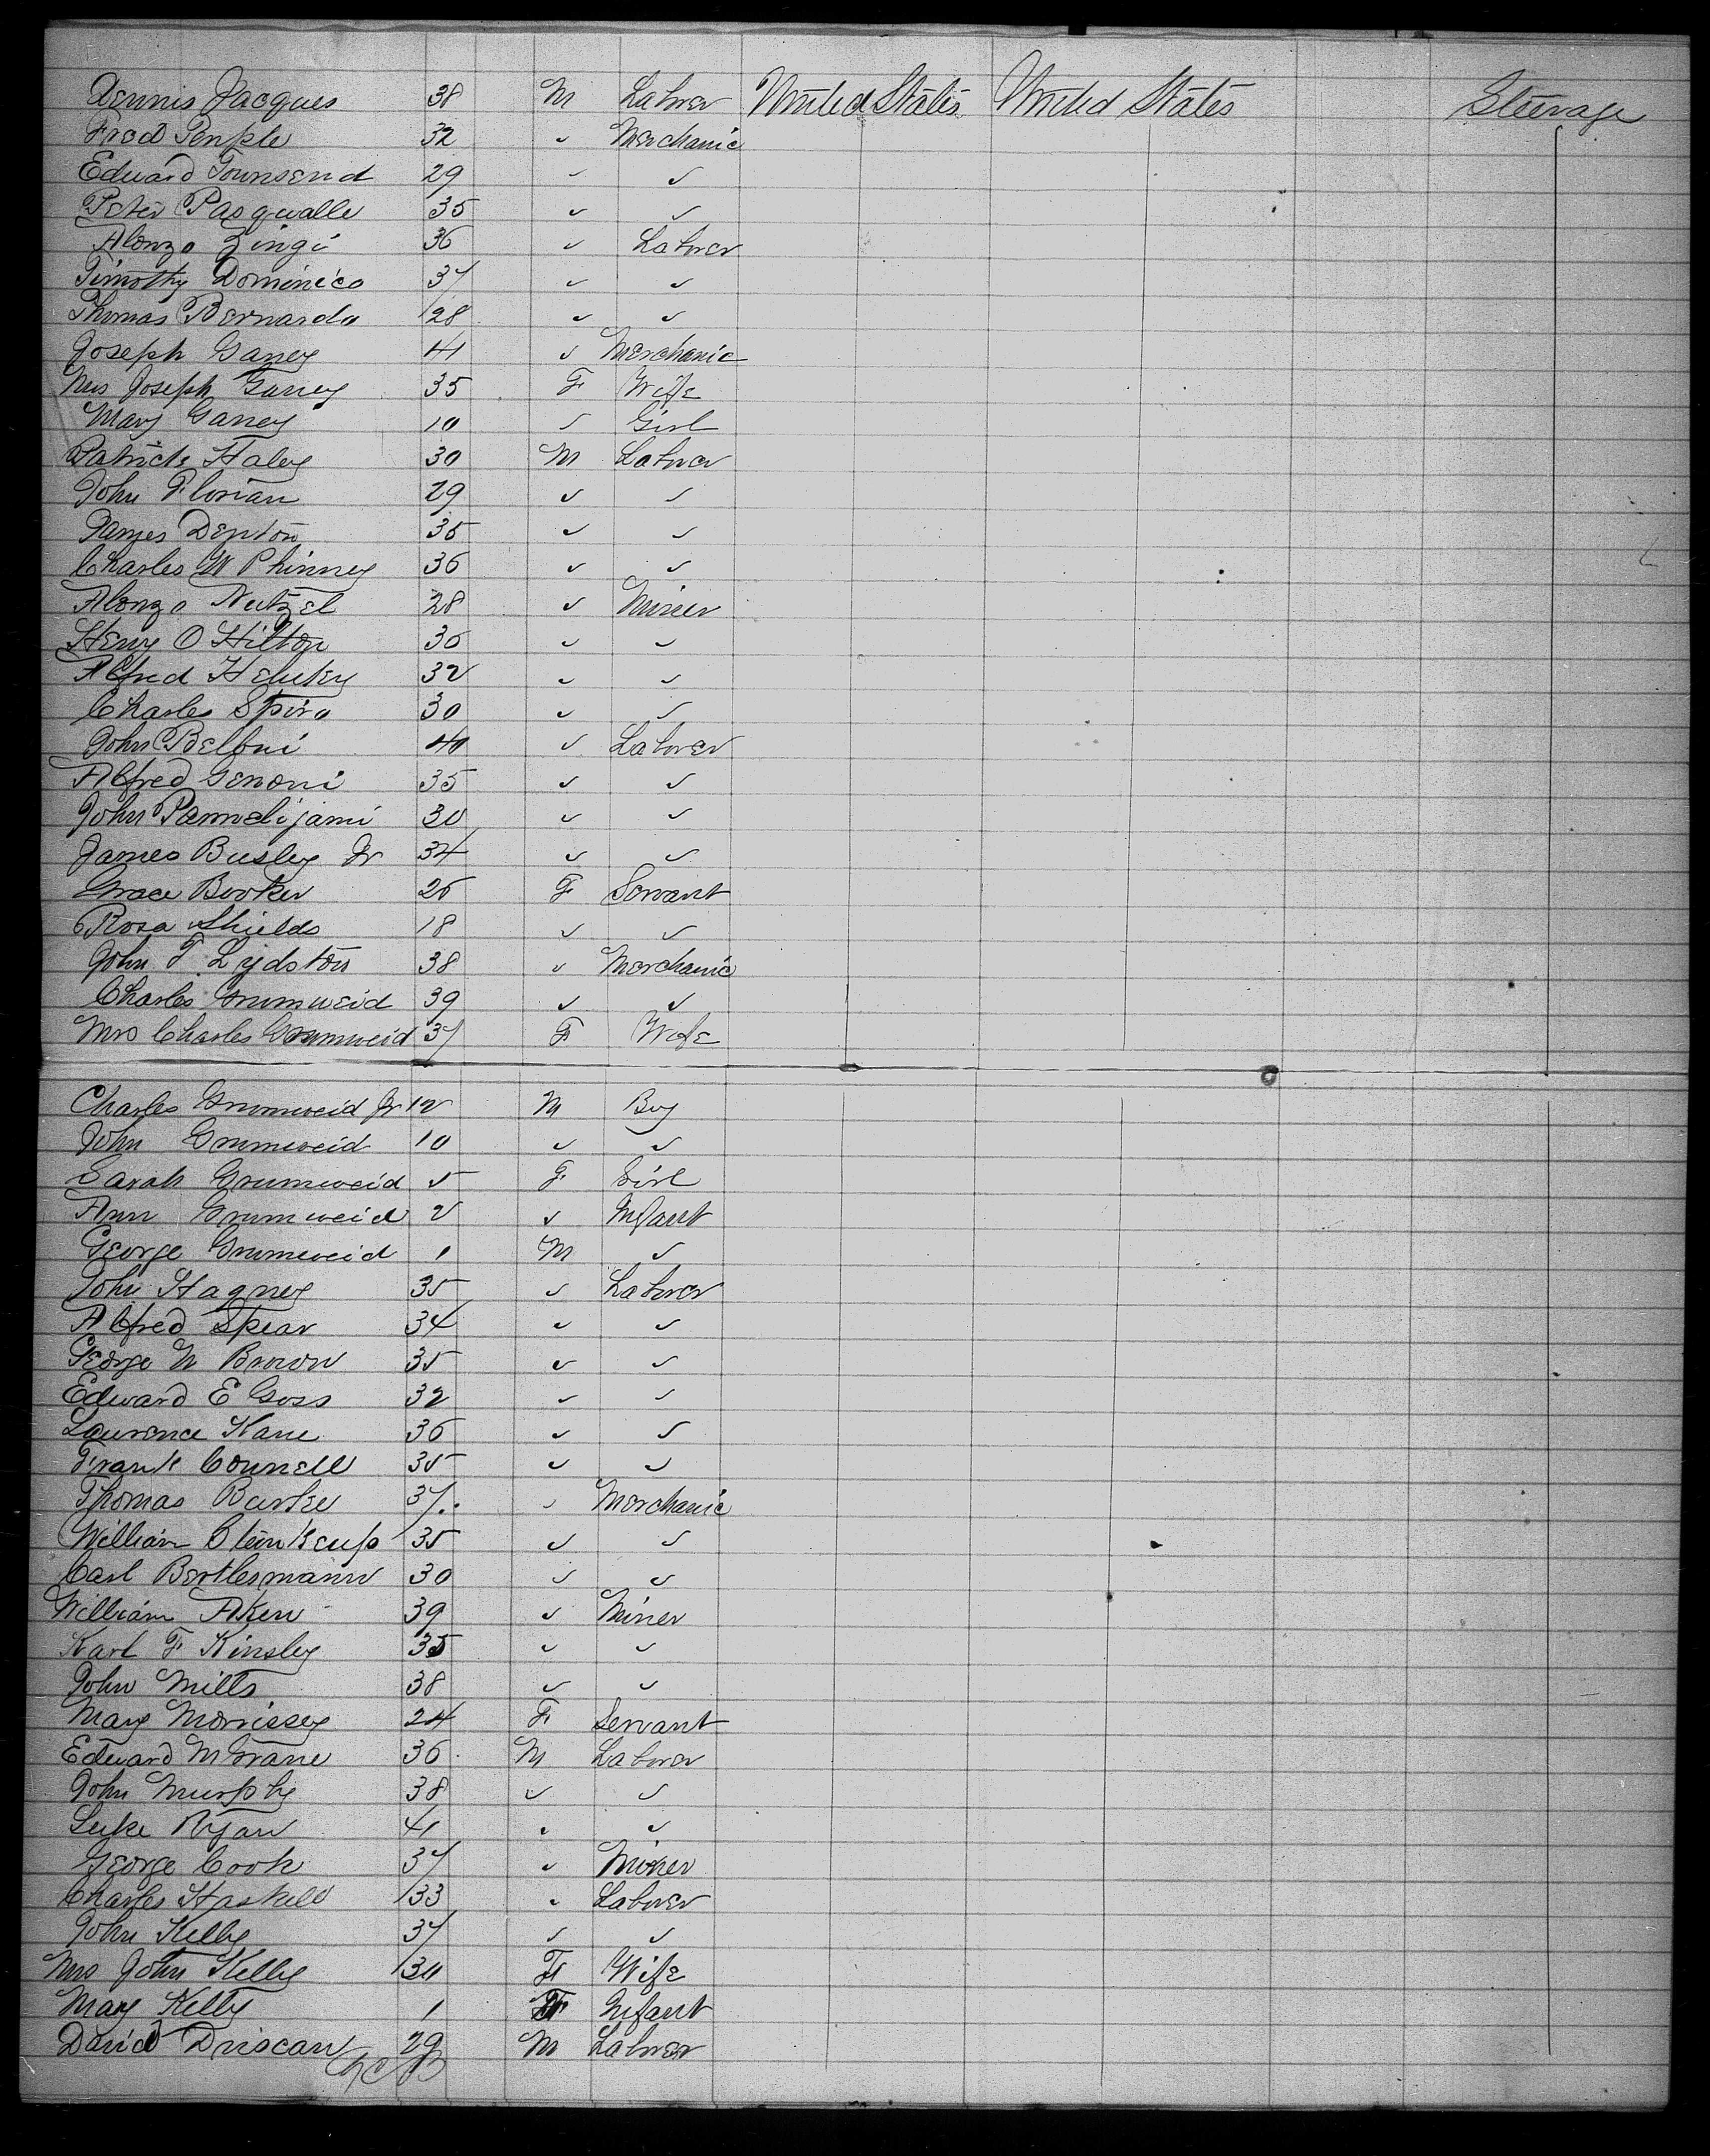 Dennis Jacques 38 M Labrer United States United States Steerage
Fred Penple 32 ✓ Merchanic
Edward Townsend 29 ✓ ✓
Peter Pasqualle 35 ✓ ✓
Alonzo Zingi 36 ✓ Labrer
Timothy Dominico 37 ✓ ✓
Thomas Bernardo 28 ✓ ✓
Joseph Garrey 41 ✓ Merchanic
Mrs Joseph Garrey 35 F Wife
Mary Garrey 10 ✓ Girl
Patrick Haley 30 M Labrer
John Florian 29 ✓ ✓
James Denton 35 ✓ ✓
Charles W Phinney 36 ✓ ✓
Alonzo Nutzel 28 ✓ Miner
Henry O Hilton 36 ✓ ✓
Alfred 32 ✓ ✓
Charles Spiro 30 ✓ ✓
John Beloni 40 ✓ Labrer
Alfred Genoni 35 ✓ ✓
John 30 ✓ ✓
James Busley Jr 34 ✓ ✓
Grace Booker 26 F Servant
Rosa Shields 18 ✓ ✓
John F Lydston 38 ✓ Merchanic
Charles Grumweid 39 ✓ ✓
Mrs Charles Grumweid 37 F Wife
Charles Grumweid Jr 12 M Boy
John Grumweid 10 ✓ ✓
Sarah Grumweid 5 F Girl
Ann Grumweid 2 ✓ Infant
George Grumweid 1 M ✓
John Hagney 35 ✓ Labrer
Alfred Spear 34 ✓ ✓
George W Brown 35 ✓ ✓
Edward E Goss 32 ✓ ✓
Laurence Kane 36 ✓ ✓
Frank Connell 35 ✓ ✓
Thomas Burke 37 ✓ Merchanic
William 35 ✓ ✓
Carl Bertlesmann 30 ✓ ✓
William Aken 39 ✓ Miner
Karl F Kinsley 35 ✓ ✓
John Mills 38 ✓ ✓
Mary Morrissey 24 F Servant
Edward McGrane 36 M Labrer
John Murphy 38 ✓ ✓
Luke Ryan 41 ✓ ✓
George Cook 37 ✓ Miner
Charles Haskell 33 ✓ Labrer
John Kelly 37 ✓ ✓
Mrs John Kelly 30 F Wife
Mary Kelly 1 F Infant
David Driscan 29 M Labrer